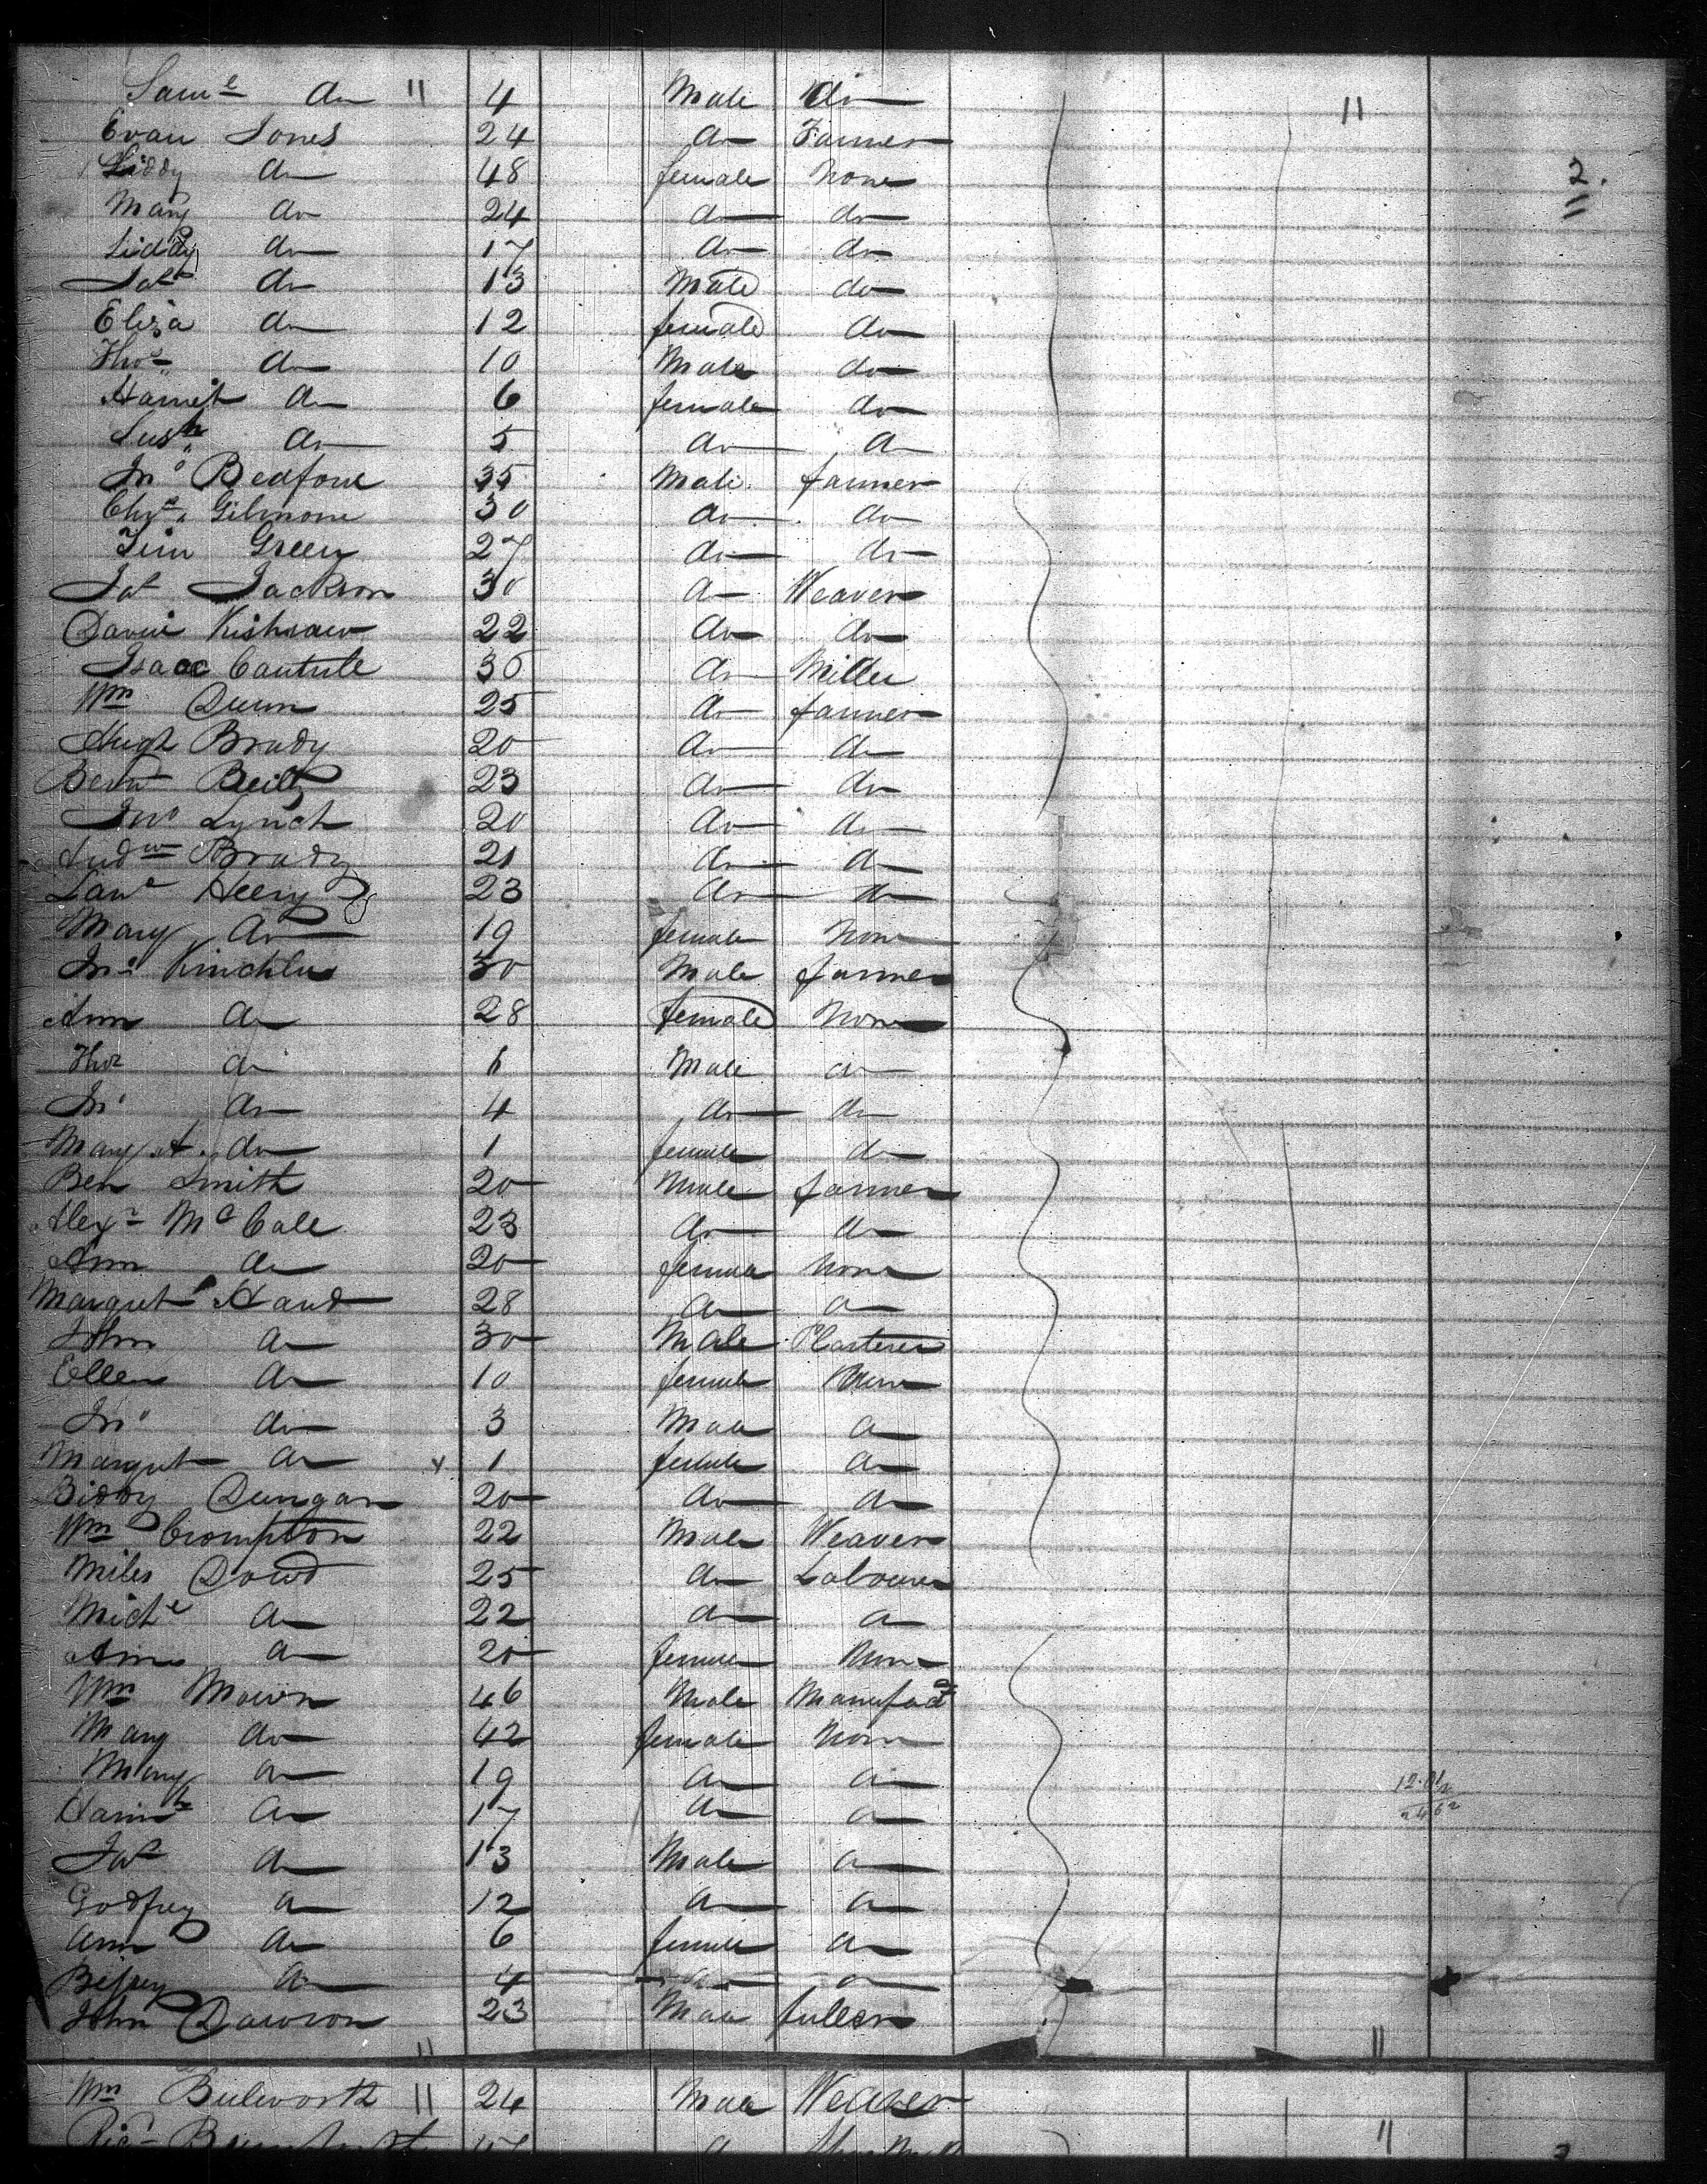 Saml do " 4 Male do
Evan Jones 24 do Farmer
Liddy do 48 female None
Mary do 24 do do
Liddy do 17 do do
Jas do 13 Male do
Eliza do 12 female do
Thos do 10 Male do
Harriet do 6 female do
Sush do 5 do do
Jno 35 Male farmer
Chrs Gilmore 30 do do
Tim Green 27 do do
Jas Jackson 30 do Weaver
David 22 do do
Isaac 30 do Miller
Wm Dunn 25 do farmer
Hugh Brady 20 do do
Bernd Reilly 23 do do
Jno Lynch 20 do do
Andw Brady 21 do do
Lawe Heery 23 do do
Mary do 19 female None
Jno 30 Male farmer
Ann do 28 female None
Thos do 6 Male do
Jno do 4 do do
Mary A. do 1 female do
Ben Smith 20 Male farmer
Alexr McCale 23 do do
Ann do 20 female None
Margret Hand 28 do do
John do 30 Male Plasterer
Ellen do 10 female None
Jno do 3 Male do
Margret do 1 female do
Biddy Dungan 20 do do
Wm Crompton 22 Male Weaver
Miles Dowd 25 do Labourer
Michl do 22 do do
Ann do 20 female None
Wm 46 Male Manufacr
Mary do 42 female None
Mary do 19 do do
Hannh do 17 do do
Jas do 13 Male do
Godfrey do 12 do do
Ann do 6 female do
Betsey do 4 do do
John Dawson 23 Male fuller
Wm Bulworth " 24 Male Weaver
2.